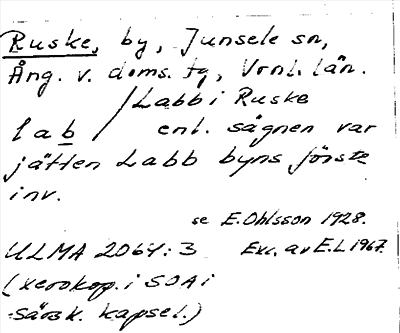 Ruske, by, Junsele sn,
Ång. v. doms. tg, Vrnl. län.
/Labb i Ruske
lab / enl. sägnen var
jätten Labb byns förste
inv.
se E. Ohlsson 1928.
ULMA 2064:3 Exc. av E.L 1967.
(xerokop. i SOA i
särsk. kapsel.)